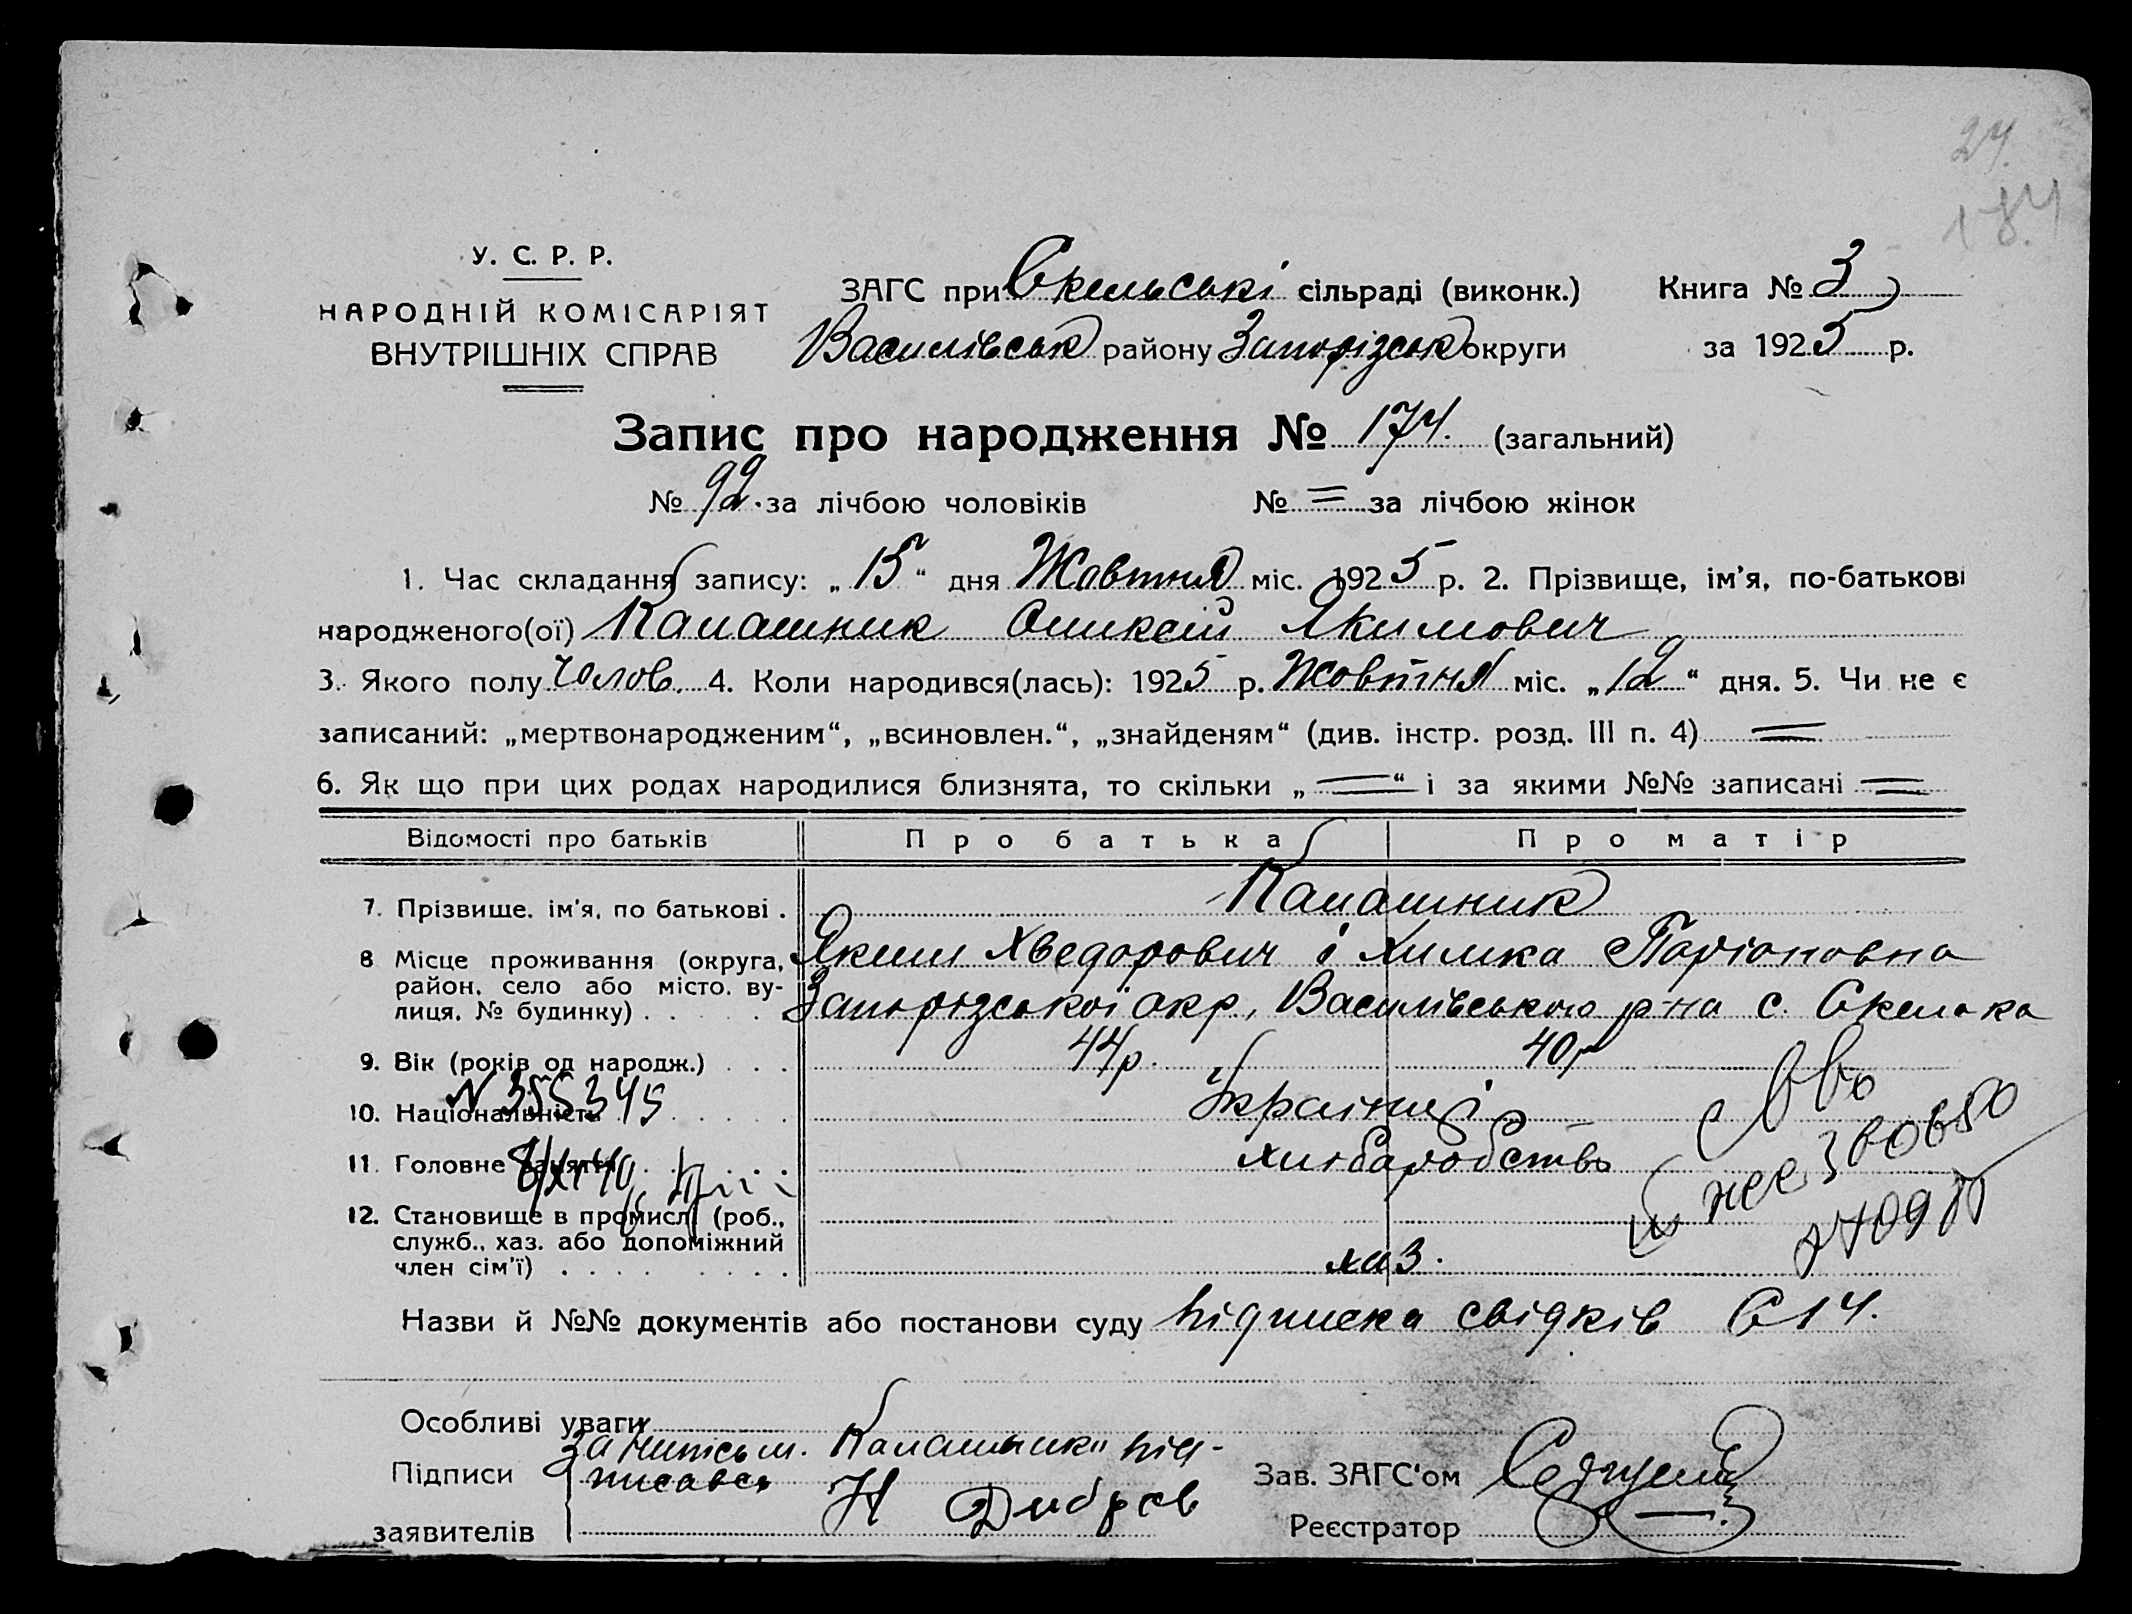 24.
184
У. С. Р. Р.
НАРОДНІЙ КОМІСАРІЯТ
ВНУТРІШНІХ СПРАВ
ЗАГС при Скельські сільраді (виконк.) Книга № 3
Василівськ району Запорізськ округи за 1925 р.
Запис про народження № 174. (загальний)
№ 92. за лічбою чоловіків № = за лічбою жінок
1. Час складання запису: „ 15 “ дня Жовтня міс. 1925 р. 2. Прізвище, ім'я, по-батькові
народженого(ої) Калашник Оликсій Якимович
3. Якого полу Чолов. 4. Коли народився(лась): 1925 р. Жовтня міс. „ 12 “ дня. 5. Чи не є
записаний: „мертвонародженим“, „всиновлен.“, „знайденям“ (див. інстр. розд. III п. 4) =
6. Як що при цих родах народилися близнята, то скільки „ = “ і за якими №№ записані =
Відомості про батьків Про батька Про матір
7. Прізвище, ім'я, по батькові . Калашник
8 Місце проживання (округа, Яким Хведорович і Химка Паріоновна
район, село або місто, ву-
лиця, № будинку) . . . . . Запорізської окр., Василівського р-на с. Скелька
9. Вік (років од народж.) . . . 44р. 40р
10. Національність Українці
N 355345
11. Головне заняття Хліборобство
8/XI 40
12. Становище в промислі (роб.,
служб., хаз. або допоміжний
член сім'ї) . . . . . . . . . хаз.
360650
Назви й №№ документів або постанови суду підписка свідків С 14.
Особливі уваги
За Калашника під-
Підписи писавсь Н Дибров Зав. ЗАГС'ом
заявителів Реєстратор